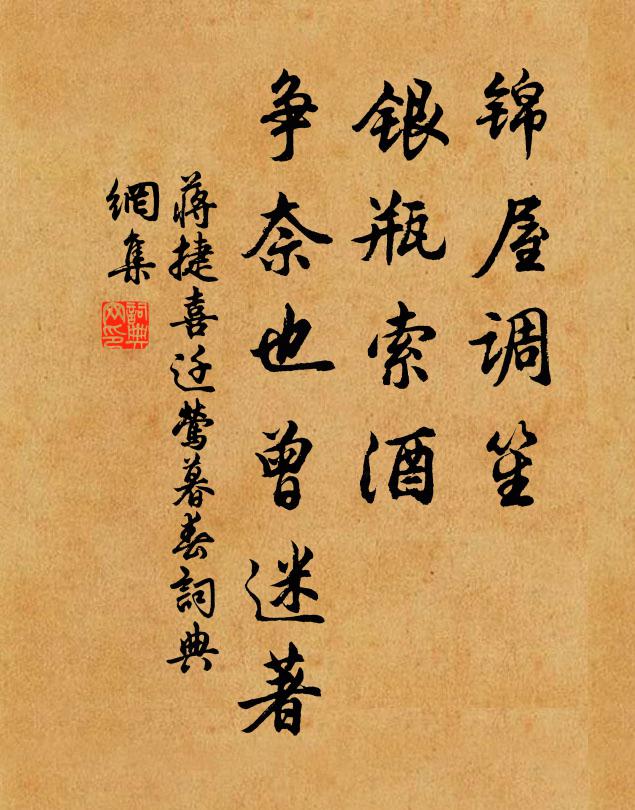 锦屋调笙
银瓶索酒
争奈也曾迷著
蒋捷喜迁莺暮春詞典
網集
詞典
网印